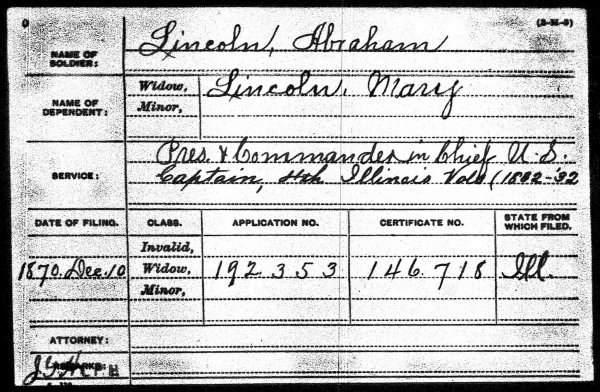 (3-M-8)
NAME OF SOLDIER: Lincoln, Abraham
NAME OF DEPENDENT: Widow, Lincoln, Mary
Minor,
SERVICE: Pres. & Commander in Chief U.S.
Captain, 4th Illinois Vols (1832-'32
DATE OF FILING. CLASS. APPLICATION NO. CERTIFICATE NO. STATE FROM WHICH FILED.
Invalid,
1870. Dec. 10 Widow, 192353 146.718 Ill.
Minor,
ATTORNEY: